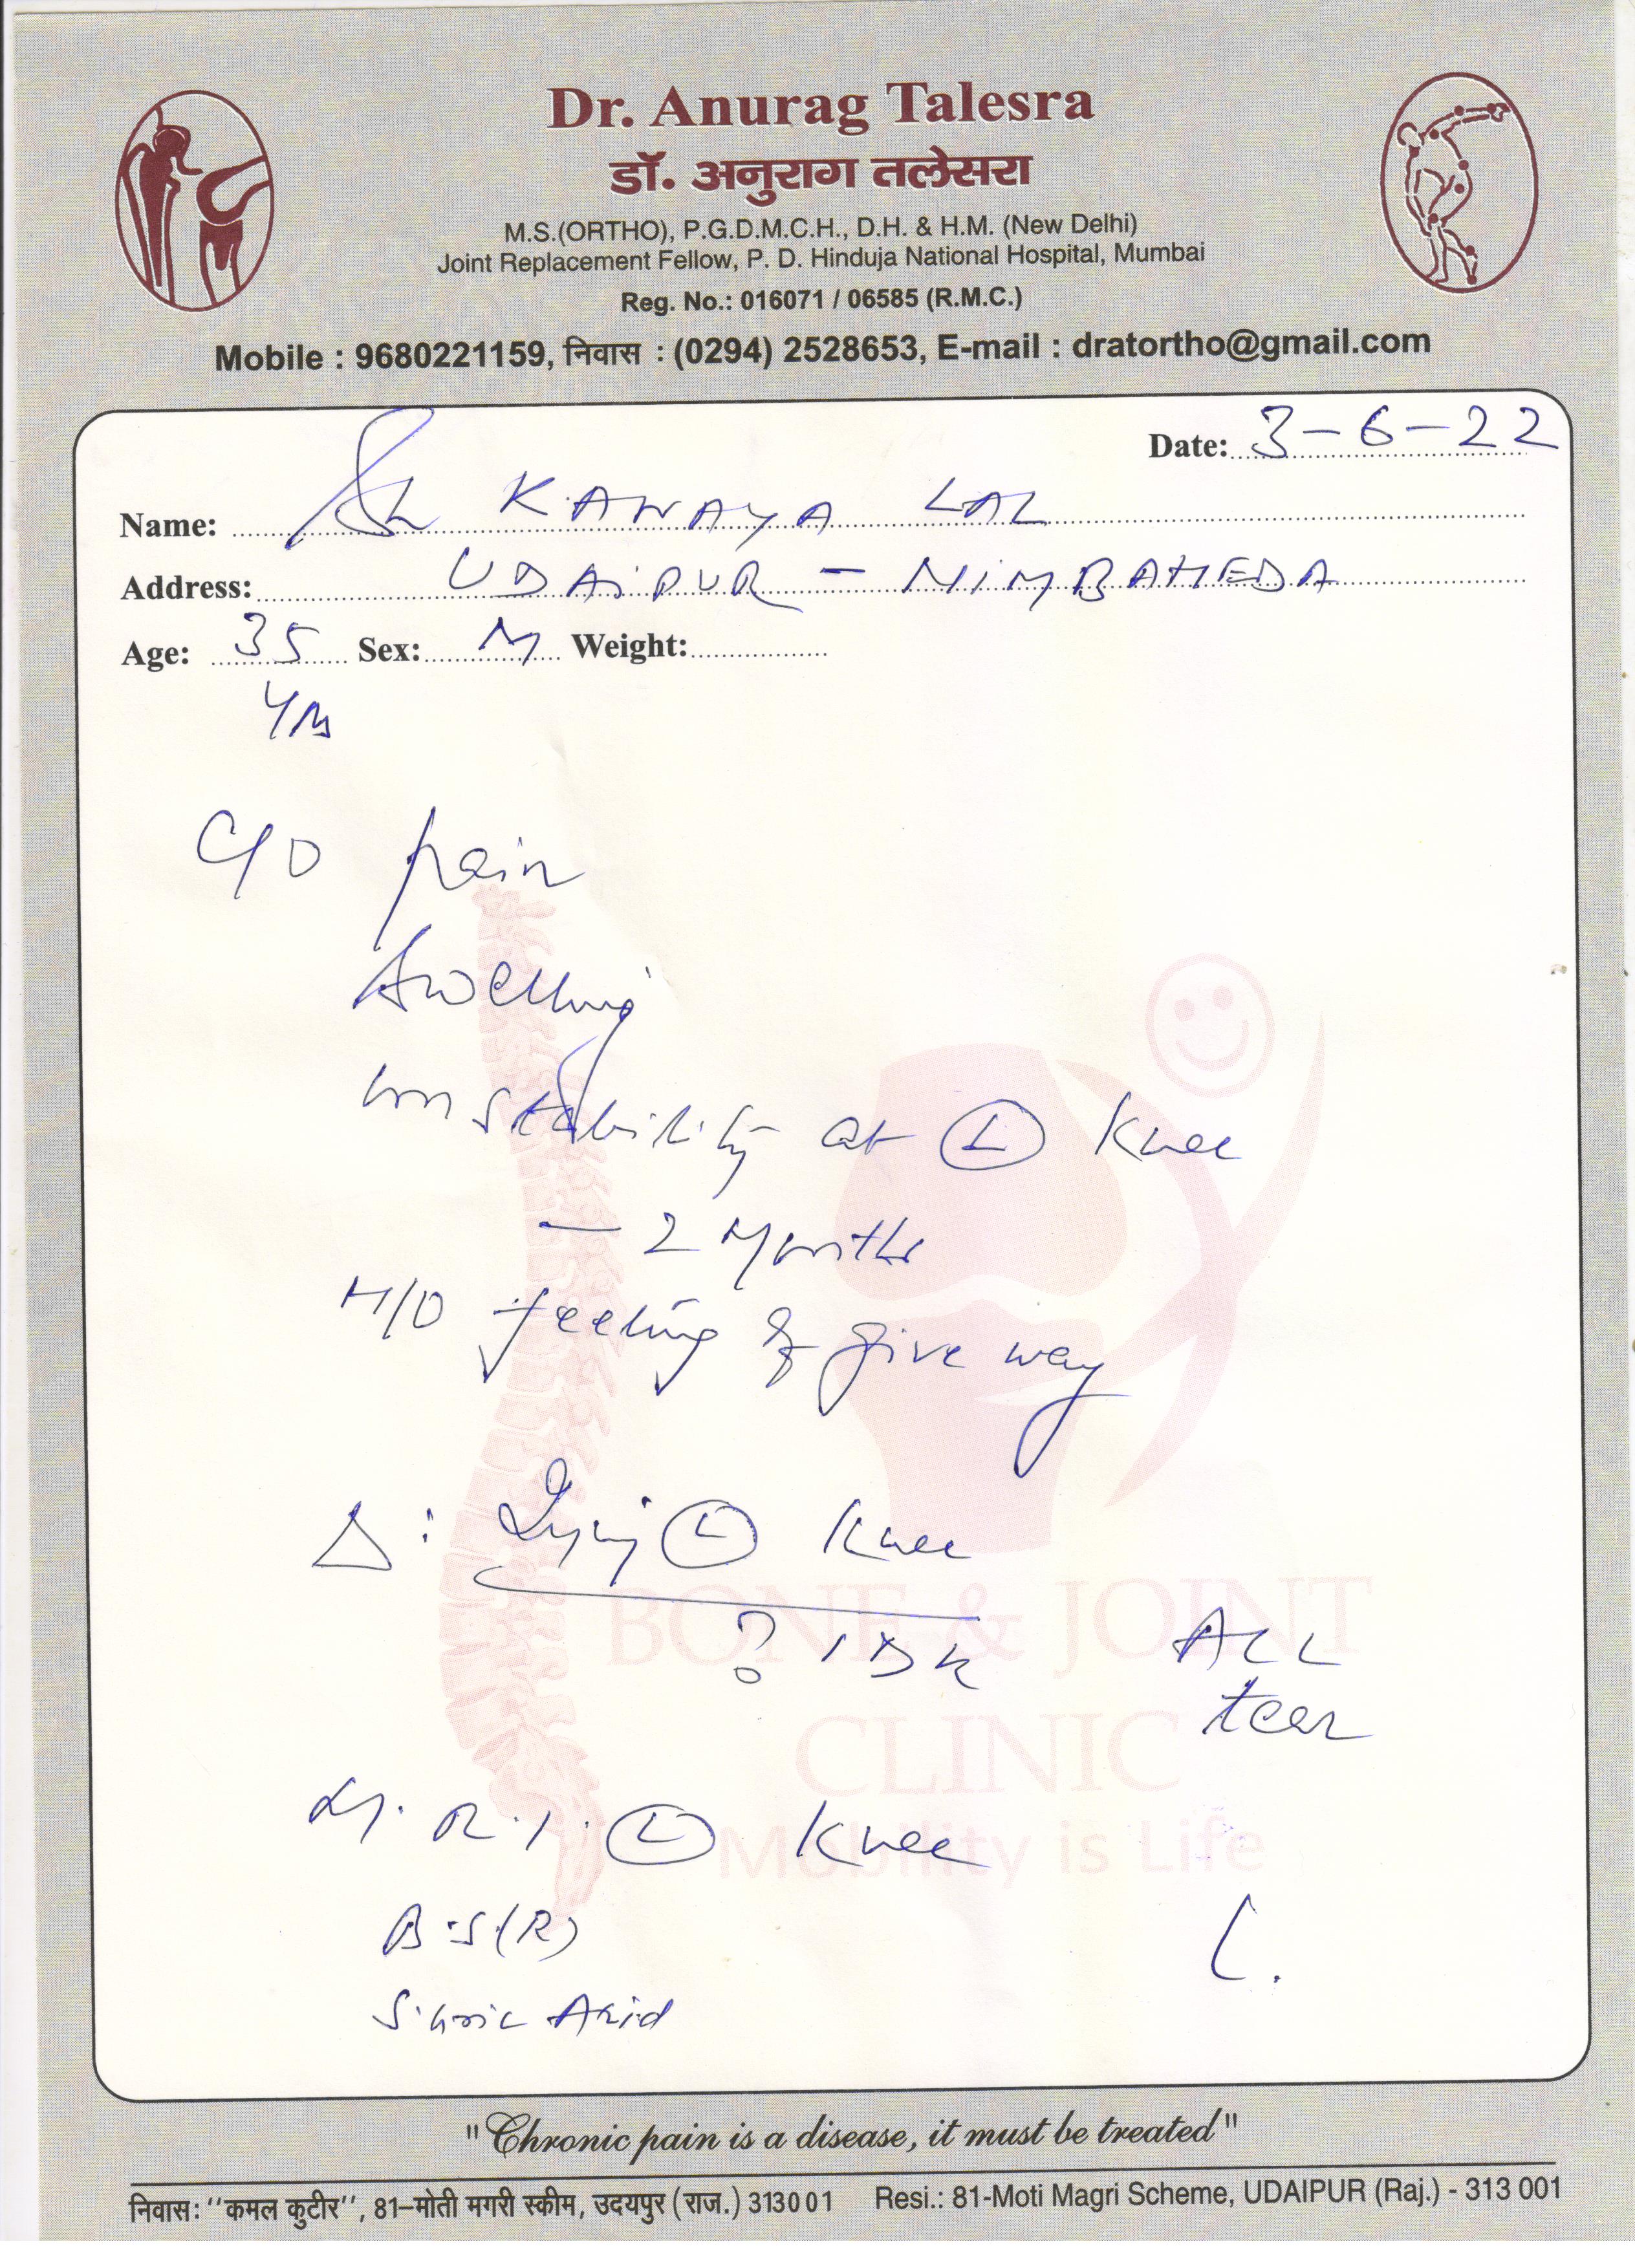 Dr. Anurag Talesra
डॉ. अनुराग तलेसरा
M.S.(ORTHO), P.G.D.M.C.H., D.H. & H.M. (New Delhi)
Joint Replacement Fellow, P. D. Hinduja National Hospital, Mumbai
Reg. No.: 016071 / 06585 (R.M.C.)
Mobile : 9680221159, निवास : (0294) 2528653, E-mail : dratortho@gmail.com
Date: 3-6-22
Name: Sh KANAYA LAL
Address: UDAIPUR - NIMBAHEDA
Age: 35 Sex: M Weight:
C/O pain
swelling
instability at (L) Knee
- 2 Months
H/O feeling of give way
Δ: Injury (L) Knee
? IDK ACL
tear
M.R.I. (L) Knee
B.S(R)
S.Uric Acid
BONE & JOINT
CLINIC
Mobility is Life
"Chronic pain is a disease, it must be treated"
निवास: "कमल कुटीर", 81-मोती मगरी स्कीम, उदयपुर (राज.) 313001 Resi.: 81-Moti Magri Scheme, UDAIPUR (Raj.) - 313 001